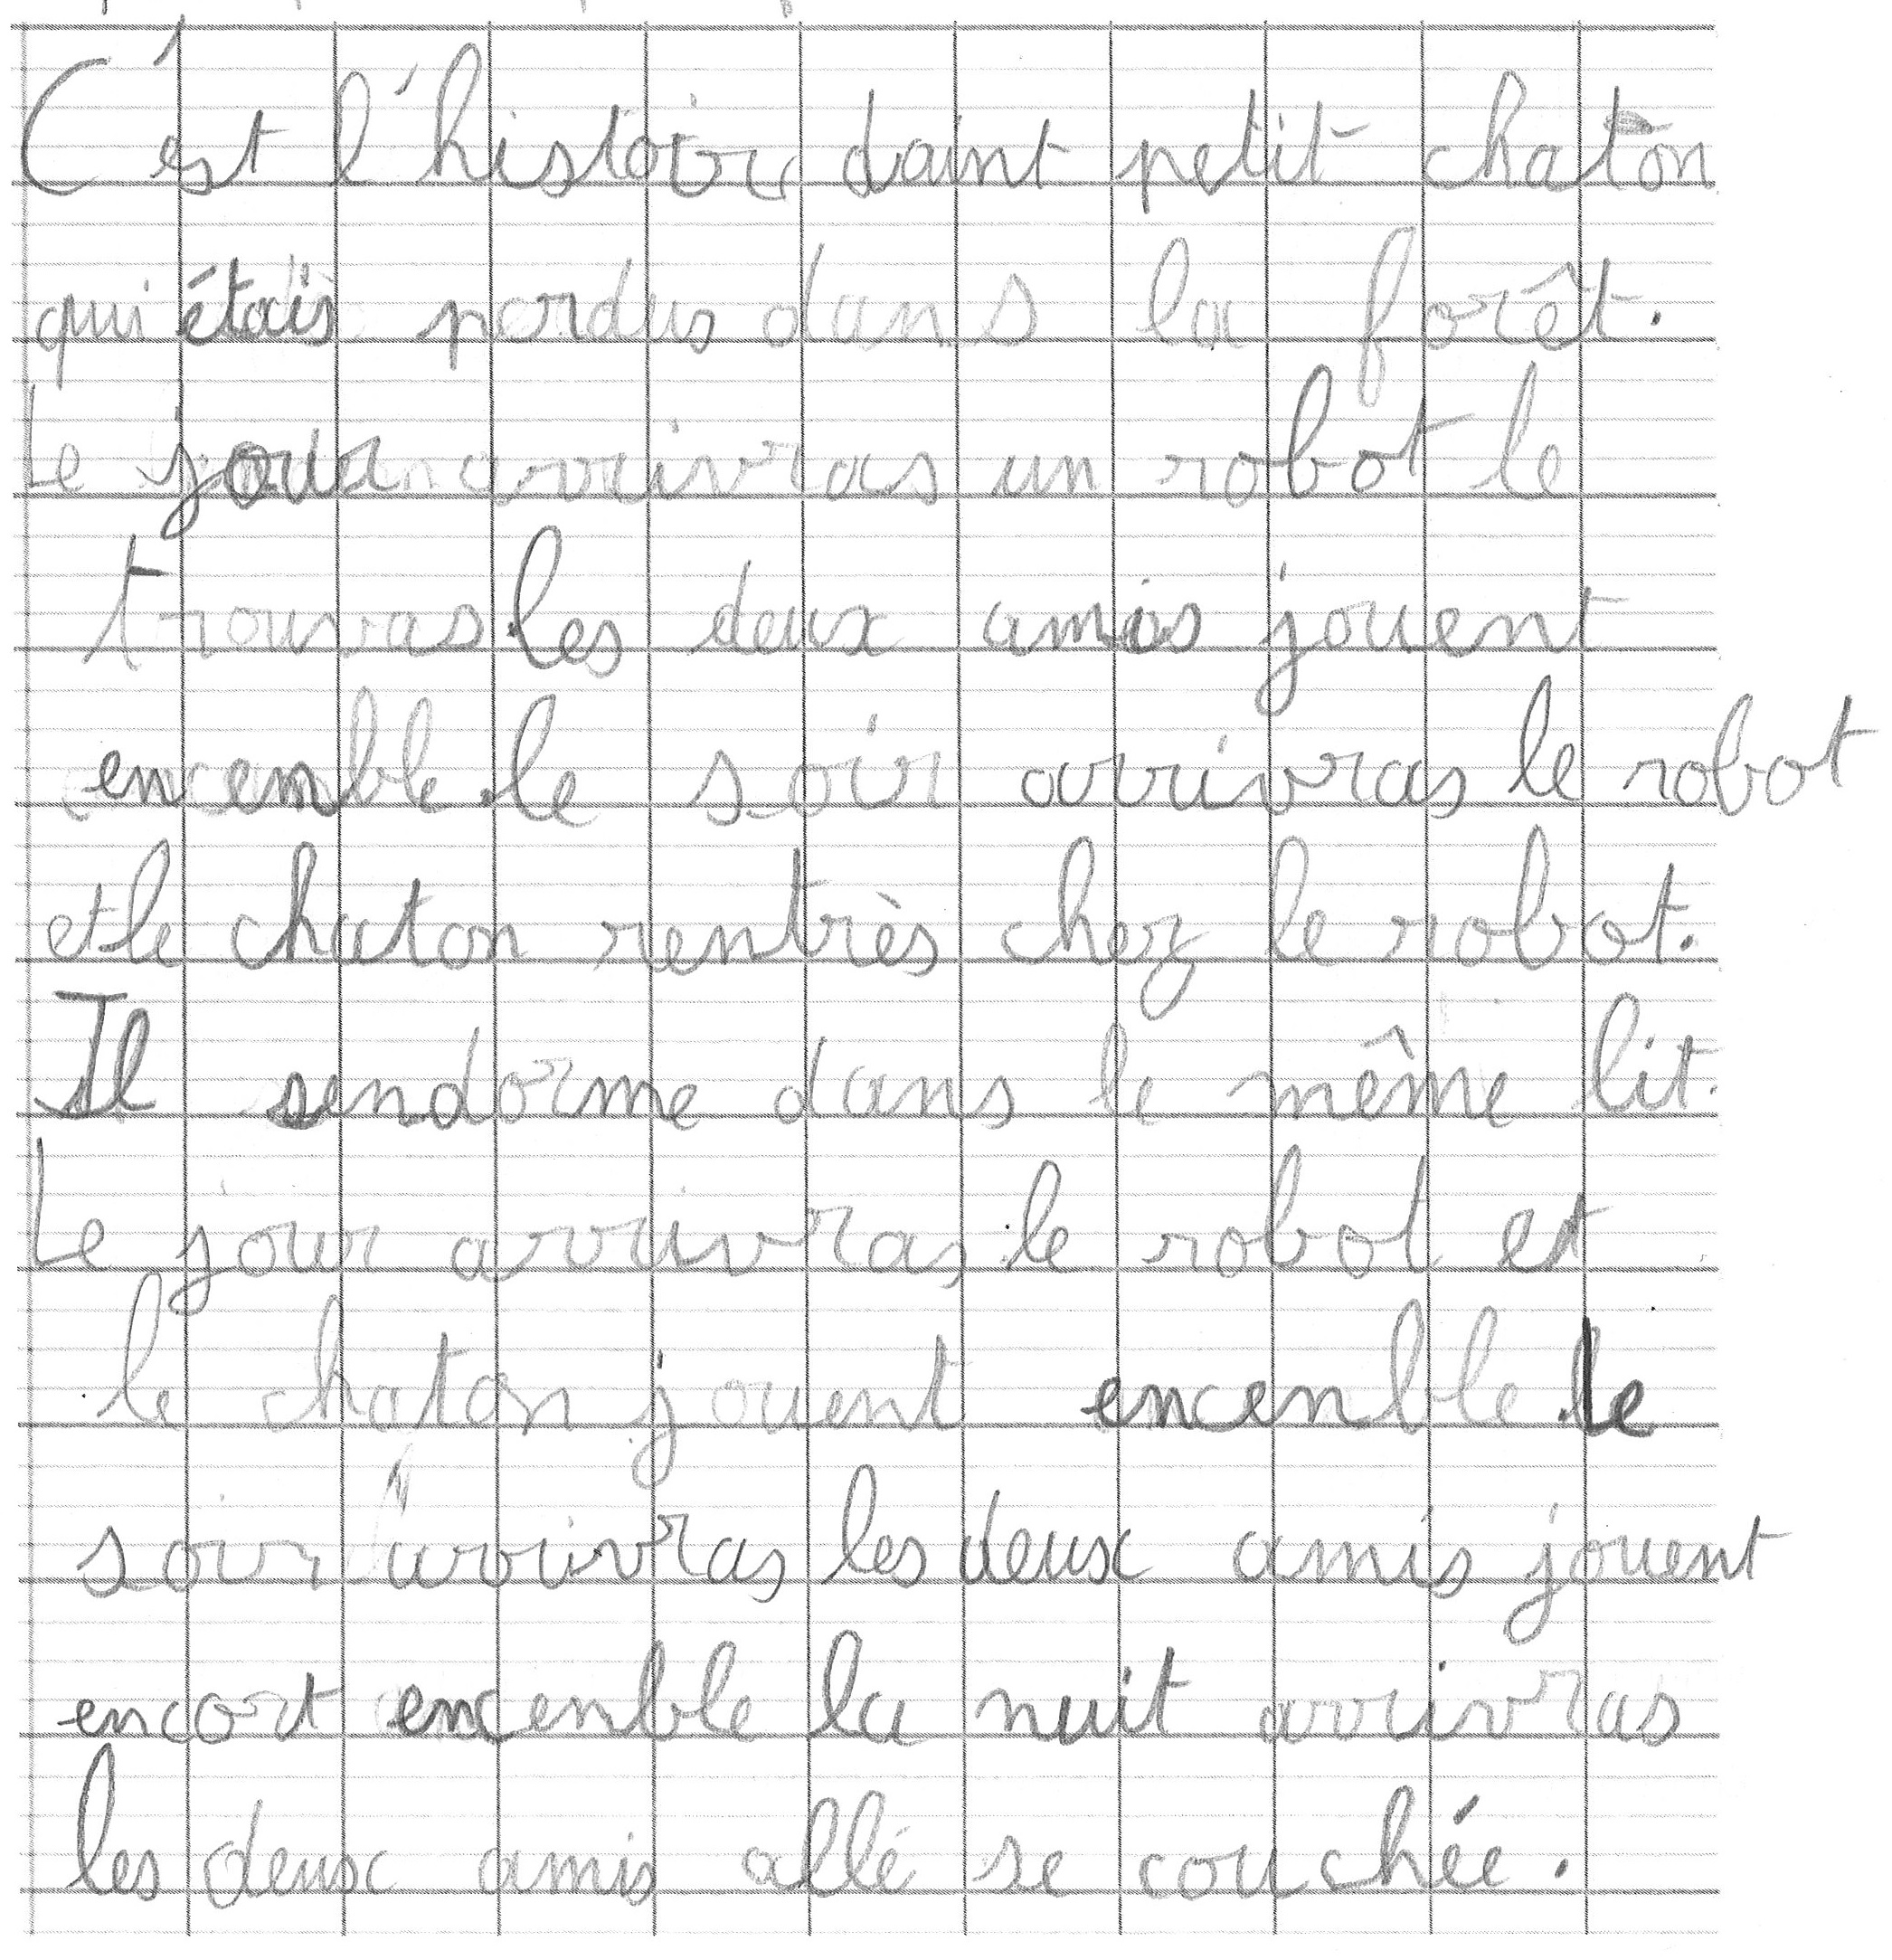 C'est l'histoire daint petit chaton
qui étais perdus dans la forêt.
Le jour arrivras un robot le
trouvas.les deux amis jouent
encemble.le soir arrivras le robot
et le chaton rentrès chez le robot.
Il sendorme dans le même lit.
Le jour arrivras le robot et
le chaton jouent encenble.le
soir arrivras les deux amis jouent
encort encenble la nuit arrivras
les deux amis allé se couchée.